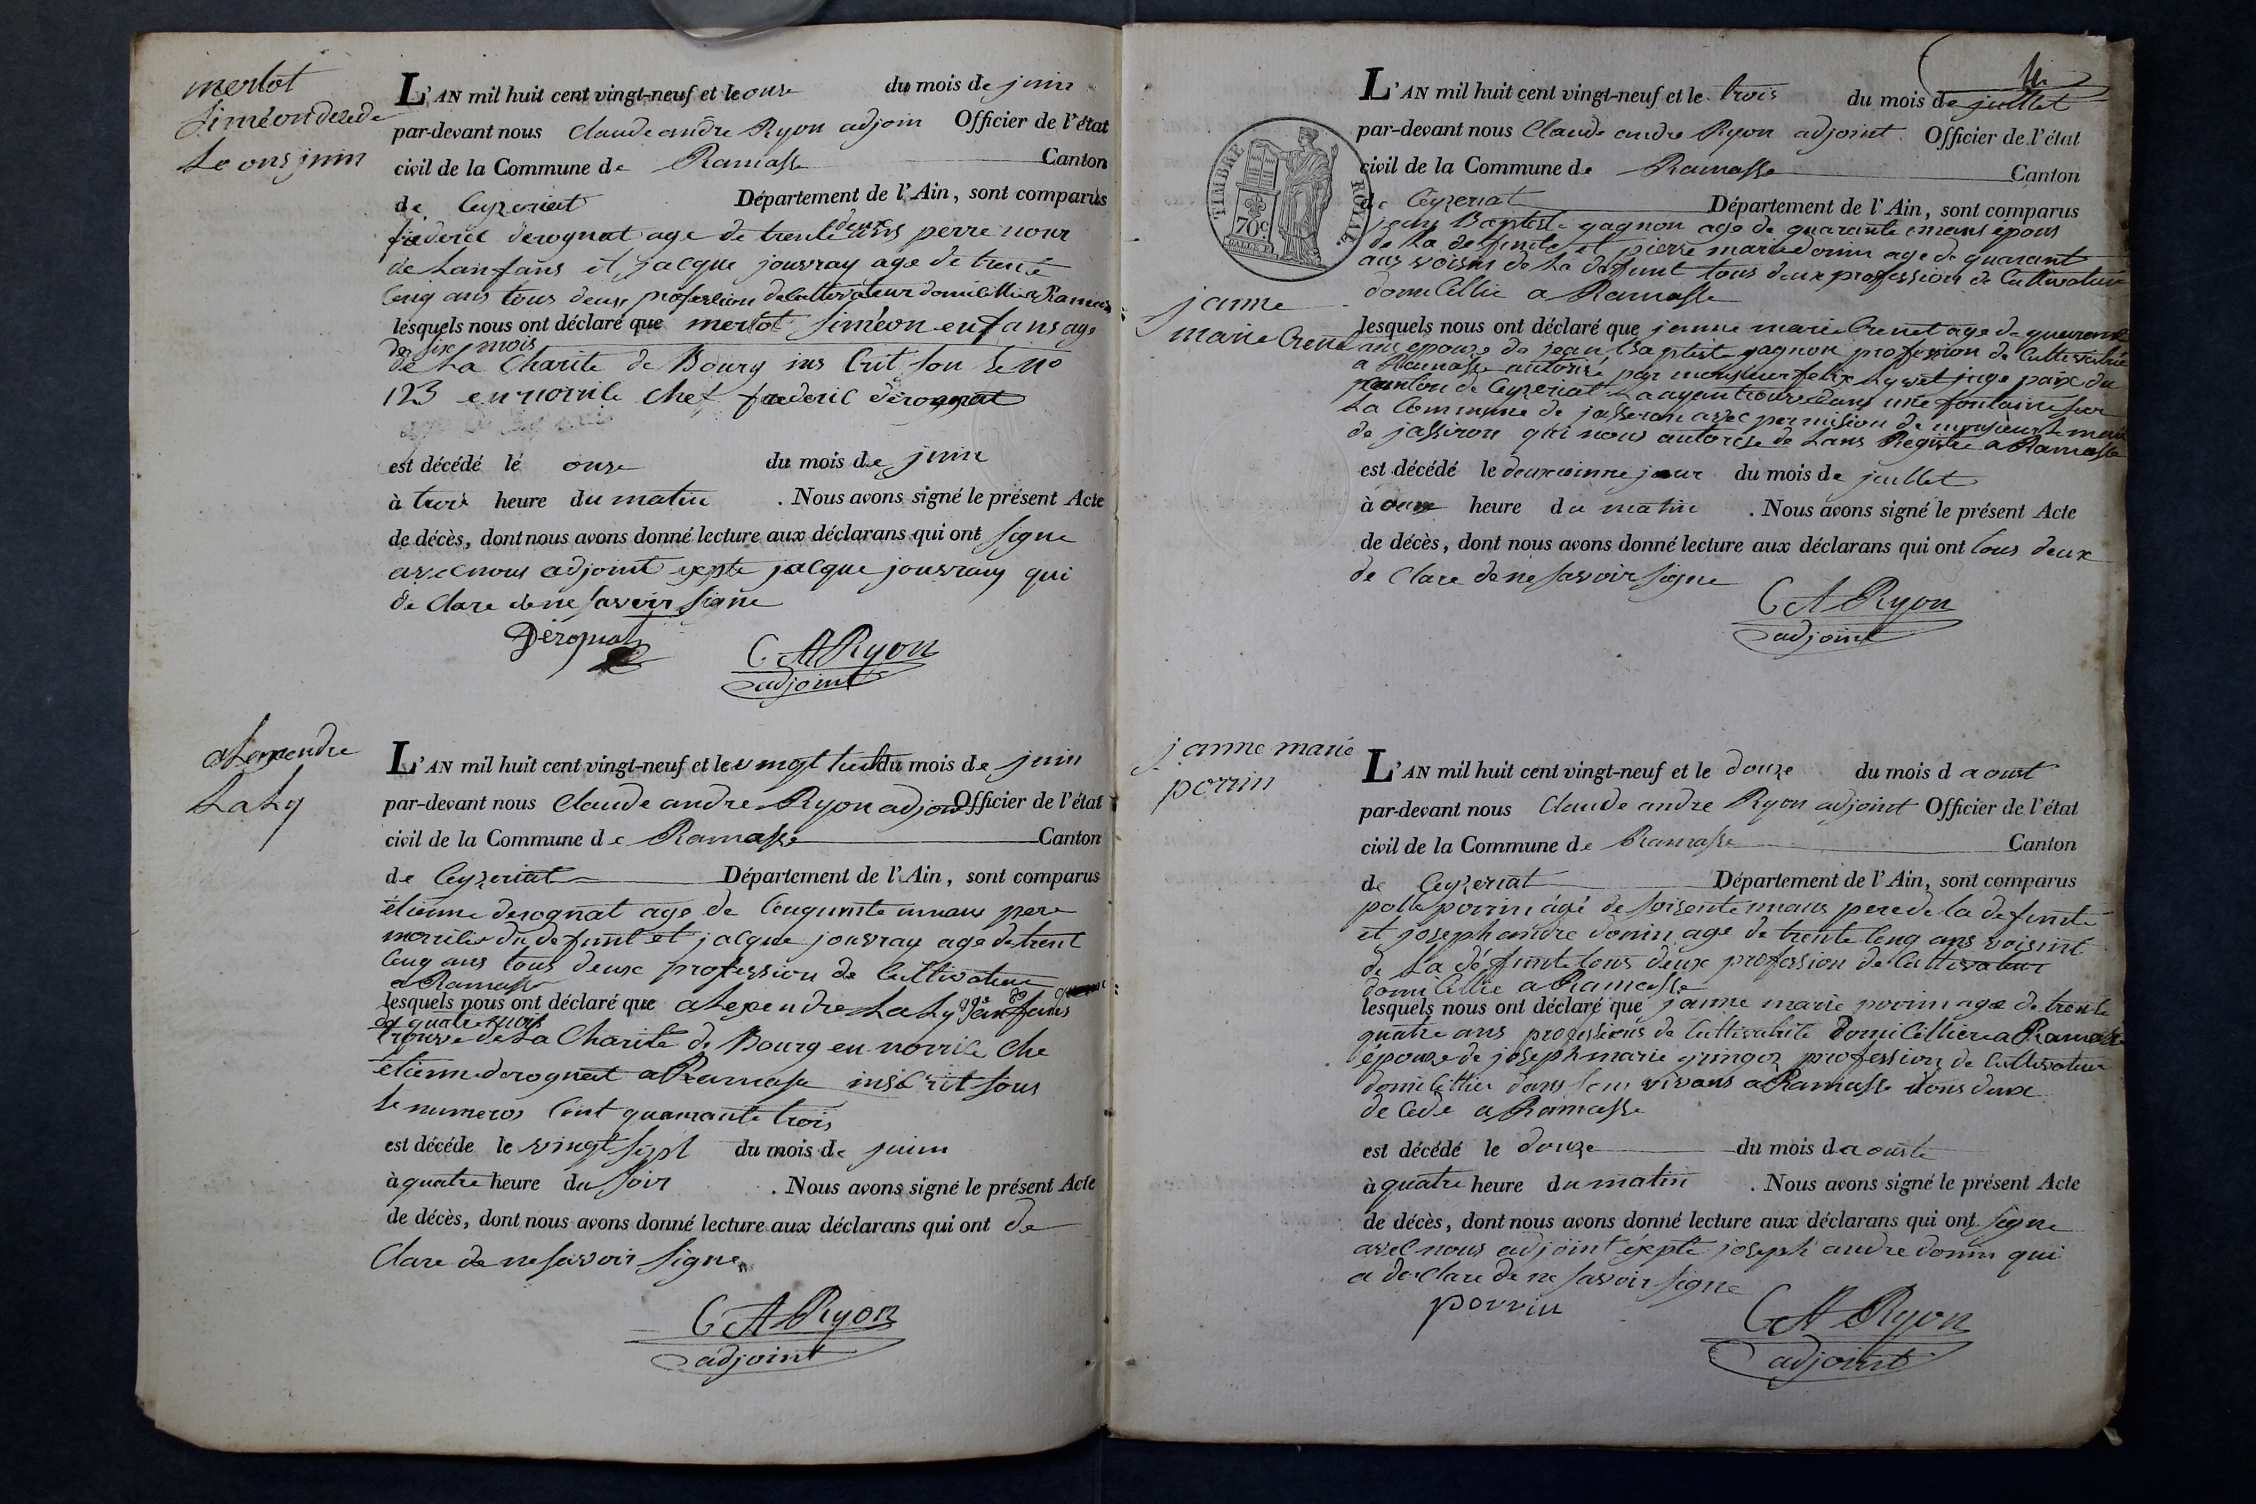 merlot
Siméon decede
Le ons juin
L'AN mil huit cent vingt-neuf et le onze du mois de juin
par-devant nous Claude andre Ryon adjoin Officier de l'état
civil de la Commune de Ramasse Canton
de Ceyzeriat Département de l'Ain, sont comparus
frederic derognat age de trente deux ans perre nour
de Lanfans et jacque jouvray age de trente
Cenq ans tous deux profession de Cultivateur domicillie a Ramasse
lesquels nous ont déclaré que merlot Siméon enfans age
de six mois
de La Charite de Bourg ins Crit sou le no
123 en norrile chet frederic derognat
est décédé lé onze du mois de juin
à trois heure du matin . Nous avons signé le présent Acte
de décès, dont nous avons donné lecture aux déclarans qui ont signe
avec nous adjoint exepte jacque jouvray qui
de Clare de ne savoir signe
Dérognat
C A Ryon
adjoint
alexendre
LaLy
L'AN mil huit cent vingt-neuf et le vingt huit du mois de juin
par-devant nous Claude andre Ryon adjoint Officier de l'état
civil de la Commune de Ramasse Canton
de Ceyzeriat Département de l'Ain, sont comparus
étienne derognat age de Cenquante ans pere
norrilie du defunt et jacque jouvray age de trent
Cenq ans tous deuxe profession de Cultivateur
a Ramasse
lesquels nous ont déclaré que alexendre LaLy age de enfans
de quatre mois
trouve de La Charite de Bourg en norrile Che
étienne derognat a Ramasse inscrit sous
le numeros Cent quarrante trois
est décéde le vingt sept du mois de juin
à quatre heure du soir . Nous avons signé le présent Acte
de décès, dont nous avons donné lecture aux déclarans qui ont de
Clare de ne savoir signe
C A Ryon
adjoint
TIMBRE ROYAL
70c.
janne
marie Crenet
L'AN mil huit cent vingt-neuf et le trois du mois de juillet
par-devant nous Claude andre Ryon adjoint Officier de l'état
civil de la Commune de Ramasse Canton
de Ceyzeriat Département de l'Ain, sont comparus
jean Baptiste gagnon age de quarante ans épous
de La defunte et pierre marie donin age de quarant
ans voisin de La défunt tous deux profession de Cultivateur
domicillie a Ramasse
lesquels nous ont déclaré que janne marie Crenet age de quarante
ans epouze de jean Baptiste gagnon profession de Cultivatrice
a Ramasse autorise par monsieur felix juge paix du
canton de Ceyzeriat La ayan trouve dans une fontaine sur
La Commune de jasseron avec permision de monsieur le maire
de jassiron qui nous autorise de Lans Registre a Ramasse
est décédé le deuxieinne jour du mois de juillet
à onze heure du matin . Nous avons signé le présent Acte
de décès, dont nous avons donné lecture aux déclarans qui ont tous deux
de Clare de ne savoir signe
C A Ryon
adjoint
janne marie
porrin
L'AN mil huit cent vingt-neuf et le douze du mois d aout
par-devant nous Claude andre Ryon adjoint Officier de l'état
civil de la Commune de Ramasse Canton
de Ceyzeriat Département de l'Ain, sont comparus
porrin ágé de soisente ans pere de la defunte
et joseph andre donin age de trente Cenq ans voisint
de La défunte tous deux profession de Cultivateur
domicillie a Ramasse
lesquels nous ont déclaré que janne marie porrin age de trente
quatre ans professions de Cultivatrite domicilliere a Ramasse
épouze de joseph marie gringoz profession de Cultivateur
domicillier dans leur vivans a Ramasse tous deux
de Cede a Ramasse
est décédé le douze du mois d aouste
à quatre heure du matin . Nous avons signé le présent Acte
de décès, dont nous avons donné lecture aux déclarans qui ont signe
avec nous adjoint éxepte joseph andre donin qui
a de Clare de ne savoir signe
porrin
C A Ryon
adjoint